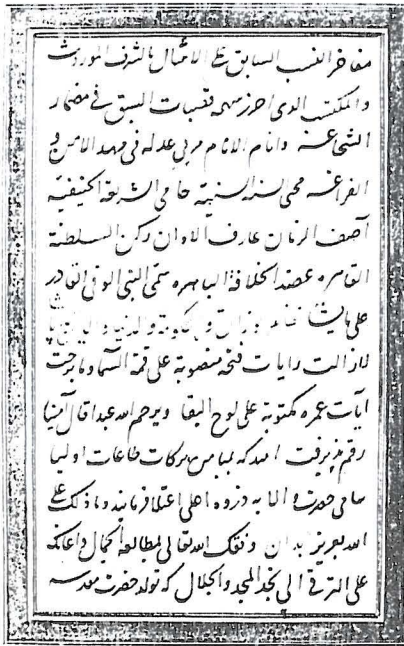 مفاخر النسب السابق علی الامثال بالشرف الموروث
والمکتسب الذی احرز سهمه قصبات السبق فی مضمار
الشجاعة وانام الانام مربی عدله فی مهد الامن و
الفراغة محی السنة السنیة حامی الشریعة الحنیفیة
آصف الزمان عارف الاوان رکن السلطنة
القاهره عضد الخلافة الباهره سمی النبی الوفی القادر
علی پاشا لا زالت
لازالت رایات فتحه منصوبة علی قمة السما وما برحت
ایات عمره مکتوبة علی لوح البقا ویرحم الله عبدا قال آمینا
رقم پذیرفت امید که بمیامن برکات طاعات اولیا
سامی حضرت والا به ذروه اعلی اعتلا فرمایند وما ذلک علی
الله بعزیز بدان وفقک الله تعالی لمطالعة الجمال واعانک
علی الترقی الی نجد المجد والجلال که تولد حضرت مقدسه